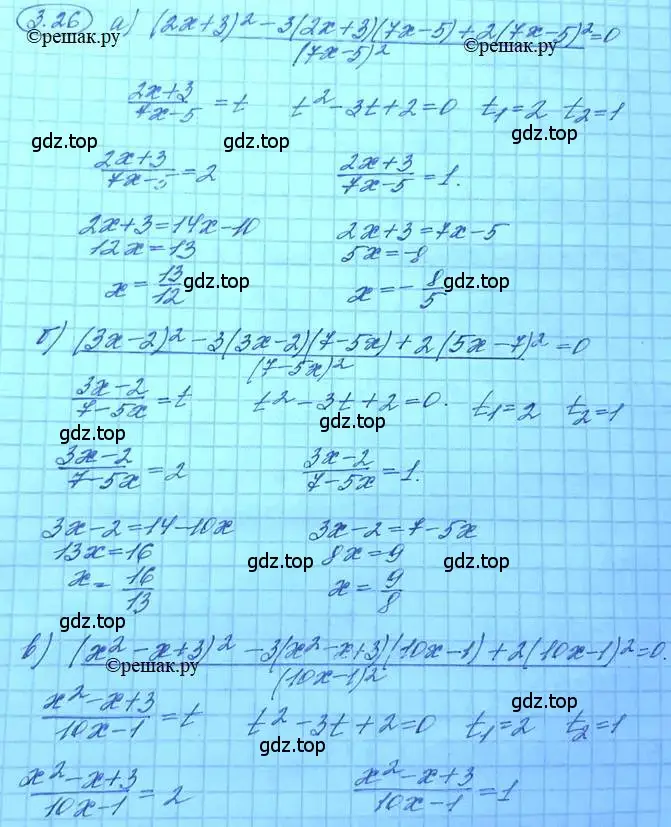 3.26 а) (2x+3)² − 3(2x+3)(7x−5) + 2(7x−5)² = 0
©решак.ру (7x−5)² ©решак.ру
2x+3 / 7x−5 = t t² − 3t + 2 = 0 t₁ = 2 t₂ = 1
gdz.top gdz.top gdz.top
2x+3 / 7x−5 = 2 2x+3 / 7x−5 = 1.
gdz.top gdz.top
2x+3 = 14x − 10 2x+3 = 7x − 5
12x = 13 5x = −8
x = 13/12 gdz.top x = − 8/5 gdz.top
б) (3x−2)² − 3(3x−2)(7−5x) + 2(5x−7)² = 0
(7−5x)²
3x−2 / 7−5x = t t² − 3t + 2 = 0. t₁ = 2 t₂ = 1
gdz.top gdz.top gdz.top
3x−2 / 7−5x = 2 3x−2 / 7−5x = 1.
3x−2 = 14−10x 3x−2 = 7−5x
13x = 16 8x = 9
gdz.top gdz.top
x = 16/13 x = 9/8
gdz.top
в) (x² − x+3)² − 3(x²−x+3)(10x−1) + 2(10x−1)² = 0.
©решак.ру (10x−1)²
x²−x+3 / 10x−1 = t t² − 3t + 2 = 0 t₁ = 2 t₂ = 1
gdz.top gdz.top gdz.top
x²−x+3 / 10x−1 = 2 x²−x+3 / 10x−1 = 1
gdz.top gdz.top